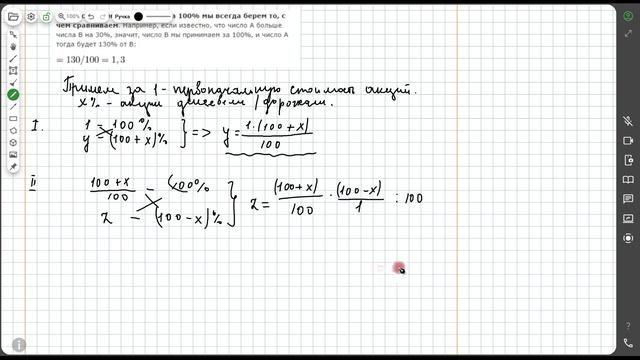 100% Ручка а 100% мы всегда берем то, с
чем сравниваем. Например, если известно, что число A больше
числа B на 30%, значит, число B мы принимаем за 100%, и число A
тогда будет 130% от B:
= 130/100 = 1, 3
Примем за 1 - первоначальную стоимость акций.
x% - акции дешевели / дорожали.
I. 1 – 100 % y – (100 + x)% } => y = 1·(100 + x) / 100
II (100 + x) / 100 – 100% z – (100 – x)% } z = (100 + x) / 100 · (100 – x) / 1 : 100